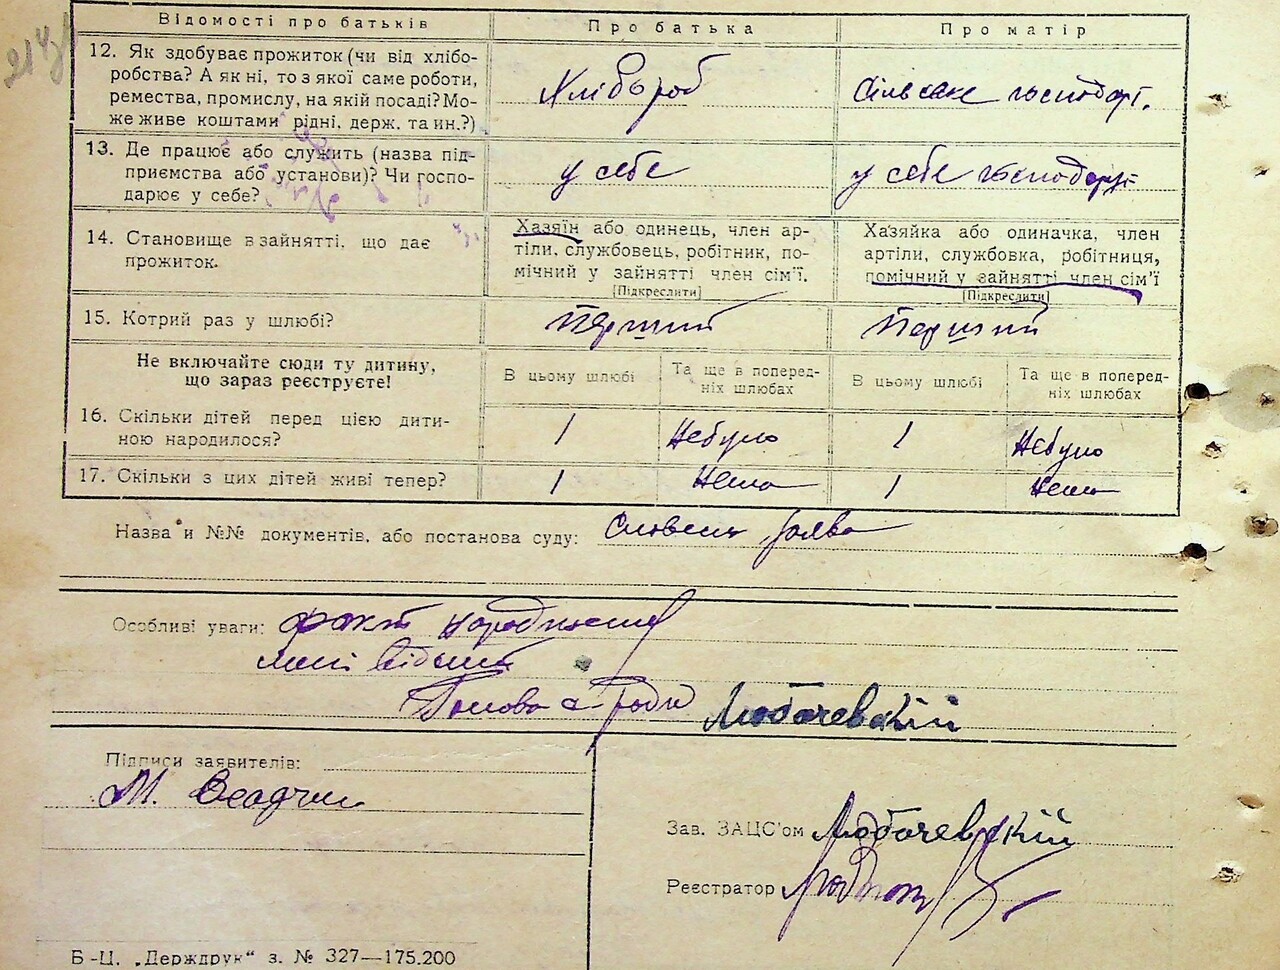 214
Відомості про батьків
Про батька
Про матір
12. Як здобуває прожиток (чи від хлібо-
робства? А як ні, то з якої саме роботи,
ремества, промислу, на якій посаді? Мо-
же живе коштами рідні, держ. та ин.?)
Хлібороб
Сільське господарт.
13. Де працює або служить (назва під-
приємства або установи)? Чи госпо-
дарює у себе?
у себе
у себе господарує
14. Становище в зайнятті, що дає
прожиток.
Хазяїн або одинець, член ар-
тіли, службовець, робітник, по-
мічний у зайнятті член сім'ї.
[Підкреслити]
Хазяйка або одиначка, член
артіли, службовка, робітниця,
помічний у зайнятті член сім'ї
[Підкреслити]
15. Котрий раз у шлюбі?
Перший
Перший
Не включайте сюди ту дитину,
що зараз реєструєте!
В цьому шлюбі
Та ще в поперед-
ніх шлюбах
В цьому шлюбі
Та ще в поперед-
ніх шлюбах
16. Скільки дітей перед цією дити-
ною народилося?
1
Небуло
1
Небуло
17. Скільки з цих дітей живі тепер?
1
Нема
1
Нема
Назва й №№ документів, або постанова суду:
Словесн заява
Особливі уваги: факт народження
мені відомий
Голова с-ради Любачевский
Підписи заявителів:
М. Осадчий
Зав. ЗАЦС'ом Любачевский
Реєстратор
Б-Ц. „Держдрук“ з. № 327—175.200